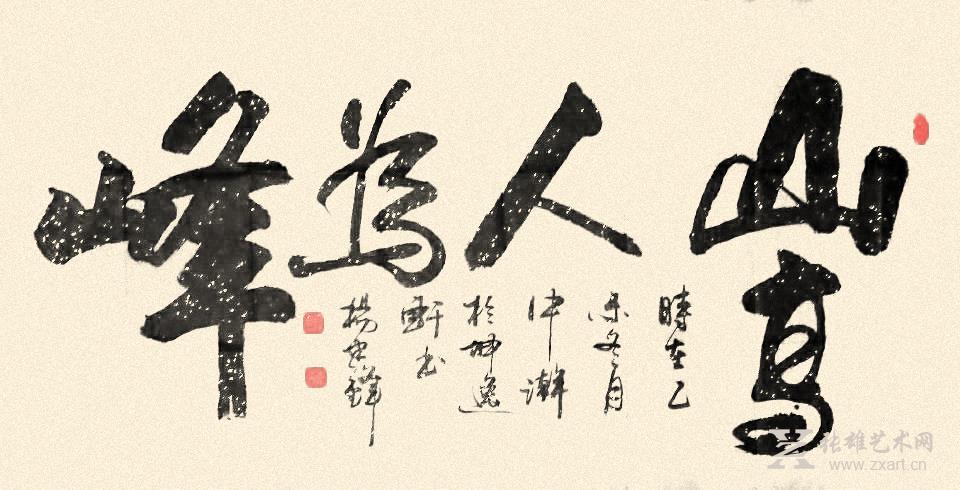 山高
人
为
峰
時在乙
未冬月
仲瀚
於坤逸
軒书
楊忠鋒
张雄艺术网
www.zxart.cn